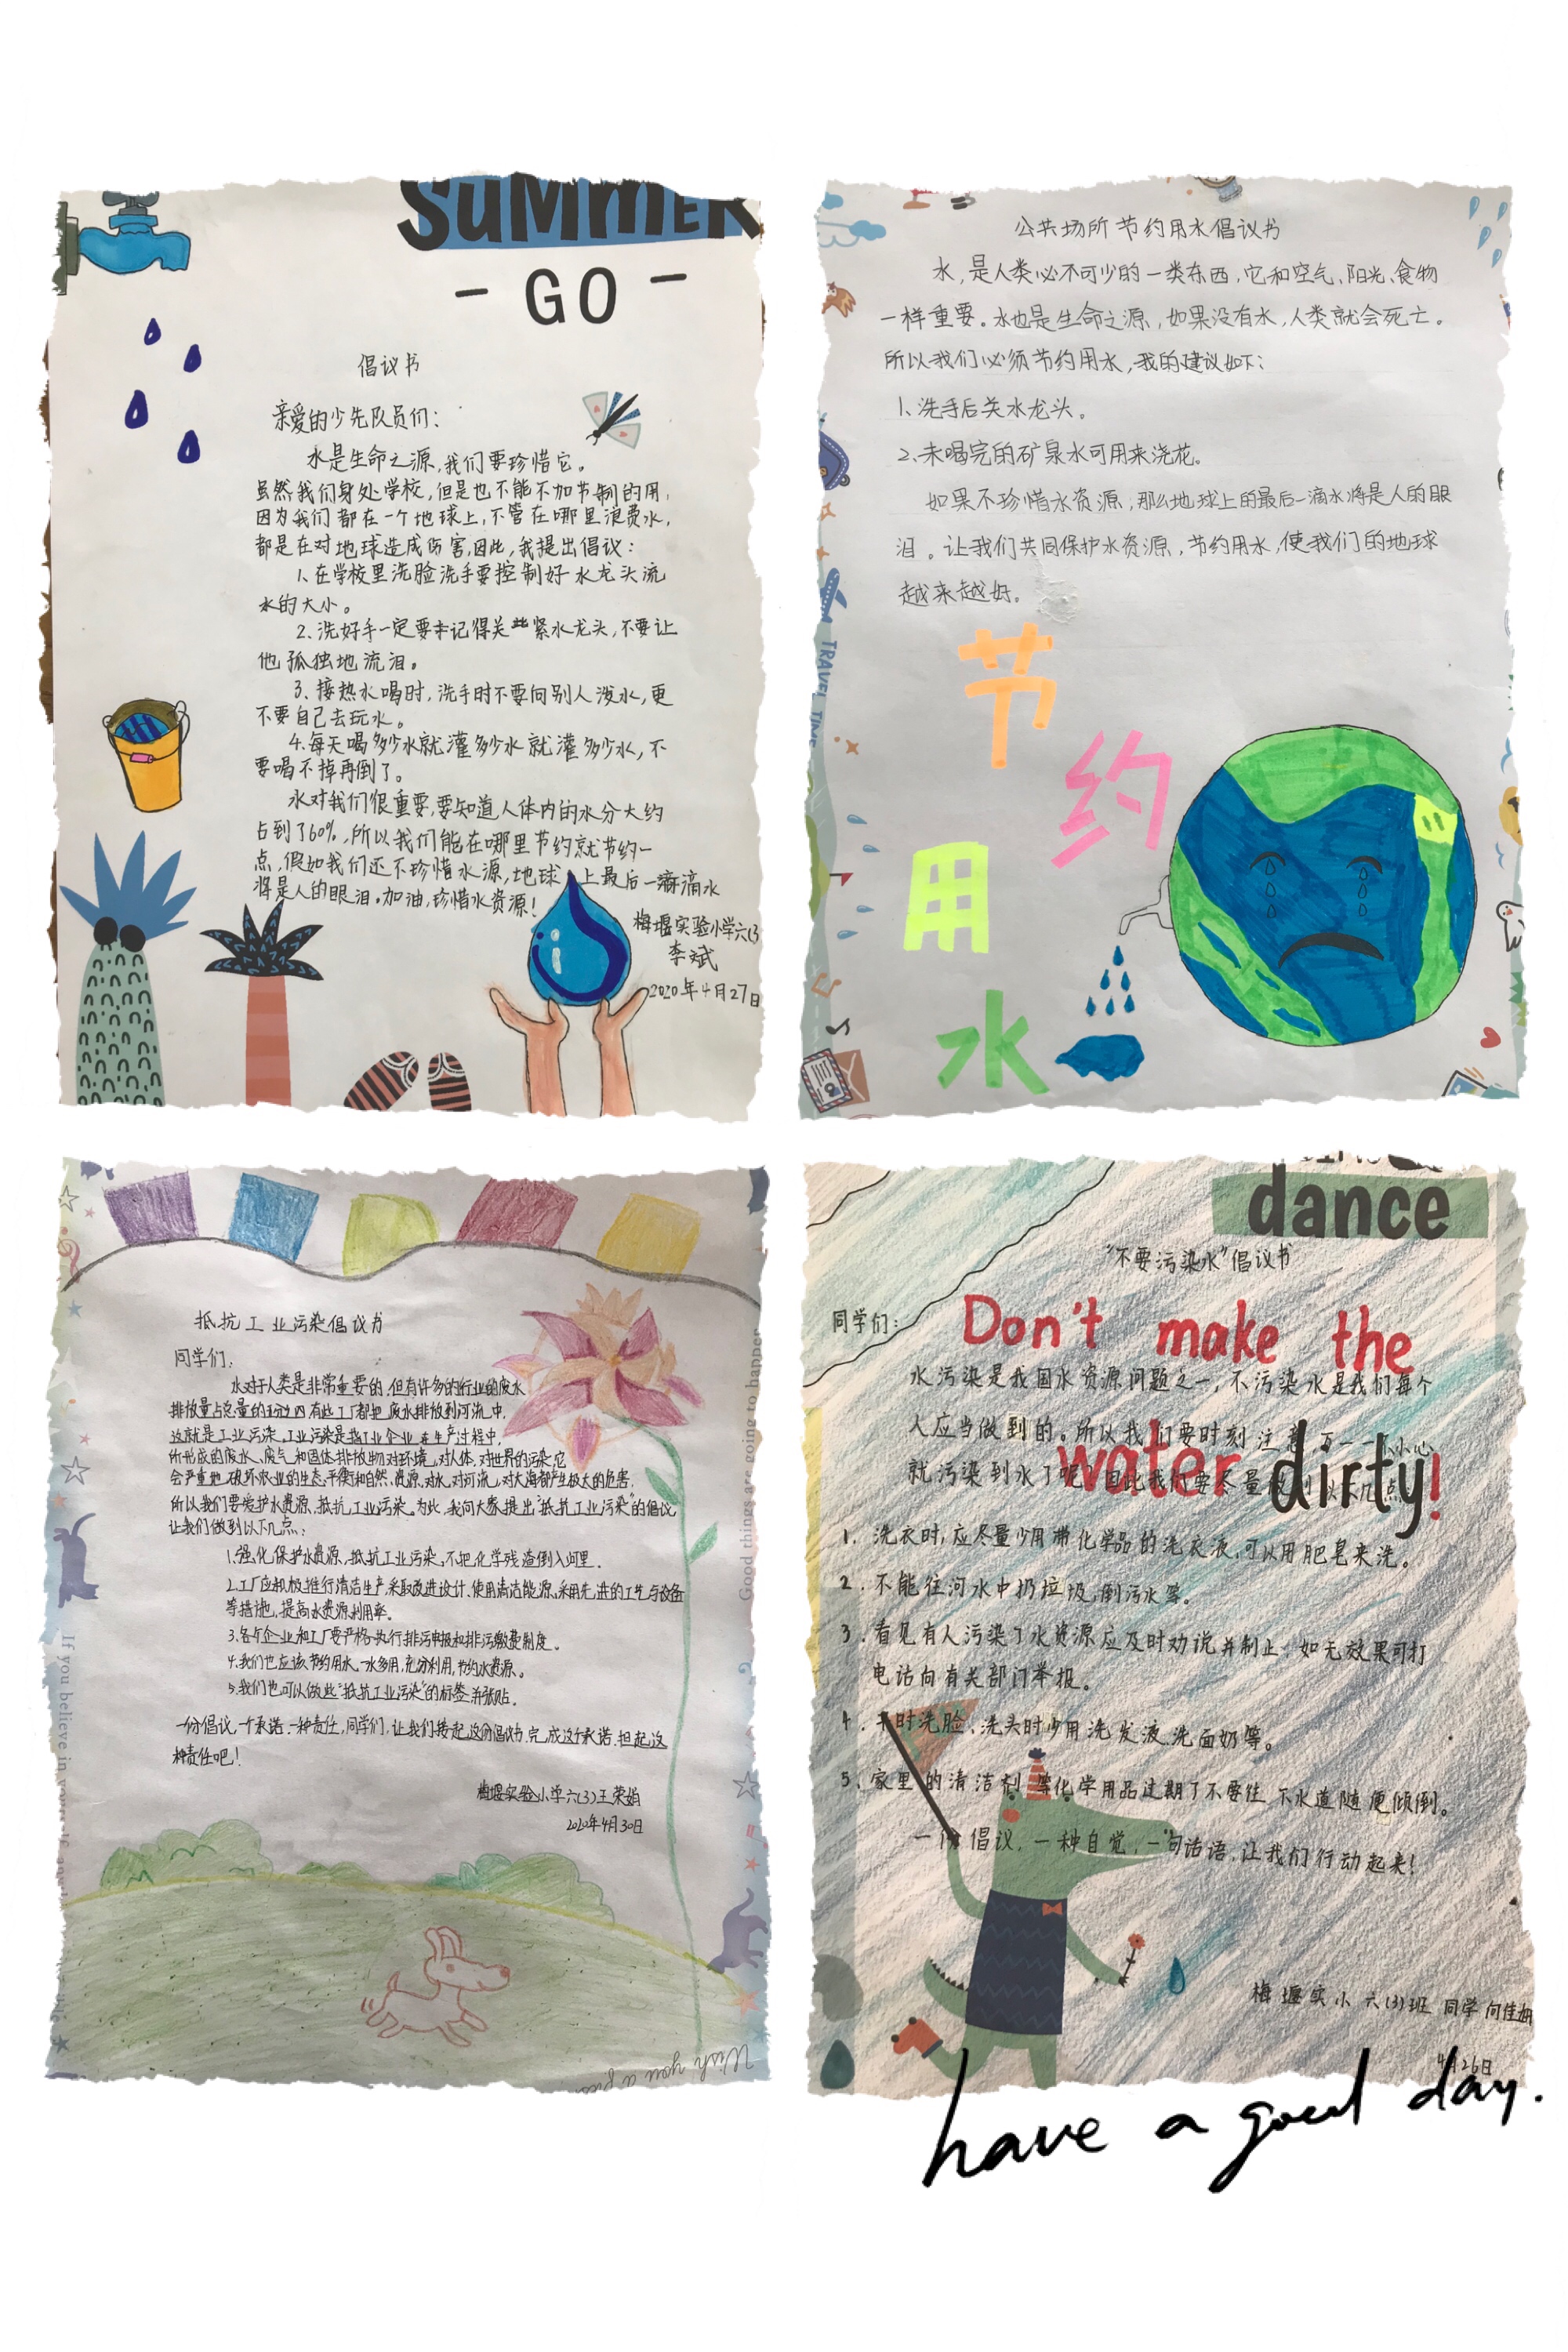 SUMMER
- GO -
倡议书
亲爱的少先队员们：
水是生命之源,我们要珍惜它。
虽然我们身处学校,但是也不能不加节制的用,
因为我们都在一个地球上,不管在哪里浪费水,
都是在对地球造成伤害,因此,我提出倡议：
1、在学校里洗脸洗手要控制好水龙头流
水的大小。
2、洗好手一定要记得关紧水龙头,不要让
他孤独地流泪。
3、接热水喝时,洗手时不要向别人泼水,更
不要自己去玩水。
4.每天喝多少水就灌多少水就灌多少水,不
要喝不掉再倒了。
水对我们很重要,要知道人体内的水分大约
占到了60%,所以我们能在哪里节约就节约一
点,假如我们还不珍惜水源,地球上最后一滴水
将是人的眼泪。加油,珍惜水资源!
梅堰实验小学六(3
李斌
2020年4月27日
公共场所节约用水倡议书
水,是人类必不可少的一类东西,它和空气、阳光、食物
一样重要。水也是生命之源,如果没有水,人类就会死亡。
所以我们必须节约用水,我的建议如下：
1、洗手后关水龙头。
2、未喝完的矿泉水可用来浇花。
如果不珍惜水资源,那么地球上的最后一滴水将是人的眼
泪。让我们共同保护水资源,节约用水,使我们的地球
越来越好。
节
约
用
水
TRAVEL TIME
抵抗工业污染倡议书
同学们：
水对于人类是非常重要的,但有许多的行业的废水
排放量占总量的 有些工厂都把废水排放到河流中,
这就是工业污染。工业污染是指工业企业在生产过程中,
所形成的废水、废气和固体排放物对环境,对人体,对世界的污染,它
会严重地破坏农业的生态平衡和自然资源,对水,对河流,对大海都产生极大的危害,
所以我们要爱护水资源、抵抗工业污染。为此,我向大家提出"抵抗工业污染"的倡议
让我们做到以下几点：
1.强化保护水资源,抵抗工业污染,不把化学残渣倒入河里.
2.工厂应积极推行清洁生产,采取改进设计、使用清洁能源、采用先进的工艺与设备
等措施,提高水资源利用率。
3.各个企业和工厂要严格执行排污申报和排污缴费制度。
4.我们也应该节约用水,一水多用,充分利用,节约水资源。
5.我们也可以做些"抵抗工业污染"的标签并张贴.
一份倡议,一个承诺,一种责任,同学们,让我们接起这份倡议书,完成这个承诺,担起这
种责任吧!
梅堰实验小学六(3)王荣娟
2020年4月30日
Good things are going to happen
If you believe in yourself
Wish you a
dance
"不要污染水"倡议书
同学们：
Don't make the
水污染是我国水资源问题之一,不污染水是我们每个
人应当做到的。所以我们要时刻注意,万一一个不小心
water dirty!
就污染到水了呢？因此我们要尽量做到以下几点
1、洗衣时,应尽量少用带化学品的洗衣液,可以用肥皂来洗。
2、不能往河水中扔垃圾,倒污水等。
3、看见有人污染了水资源应及时劝说并制止；如无效果可打
电话向有关部门举报。
4、平时洗脸、洗头时少用洗发液、洗面奶等。
5、家里的清洁剂等化学用品过期了不要往下水道随便倾倒。
一份倡议,一种自觉,一句话语,让我们行动起来!
梅堰实小六(3)班 同学 向佳妍
4月26日
have a good day.